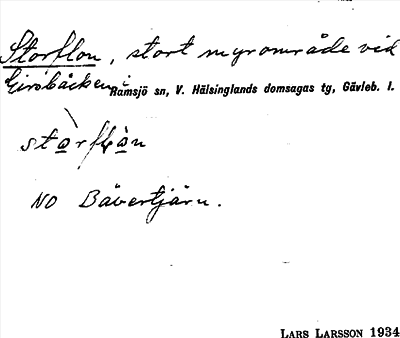 Storflon, stort myrområde vid
Girobäcken i
Ramsjö sn, V. Hälsinglands domsagas tg, Gävleb. l.
NO Bävertjärn.
LARS LARSSON 1934